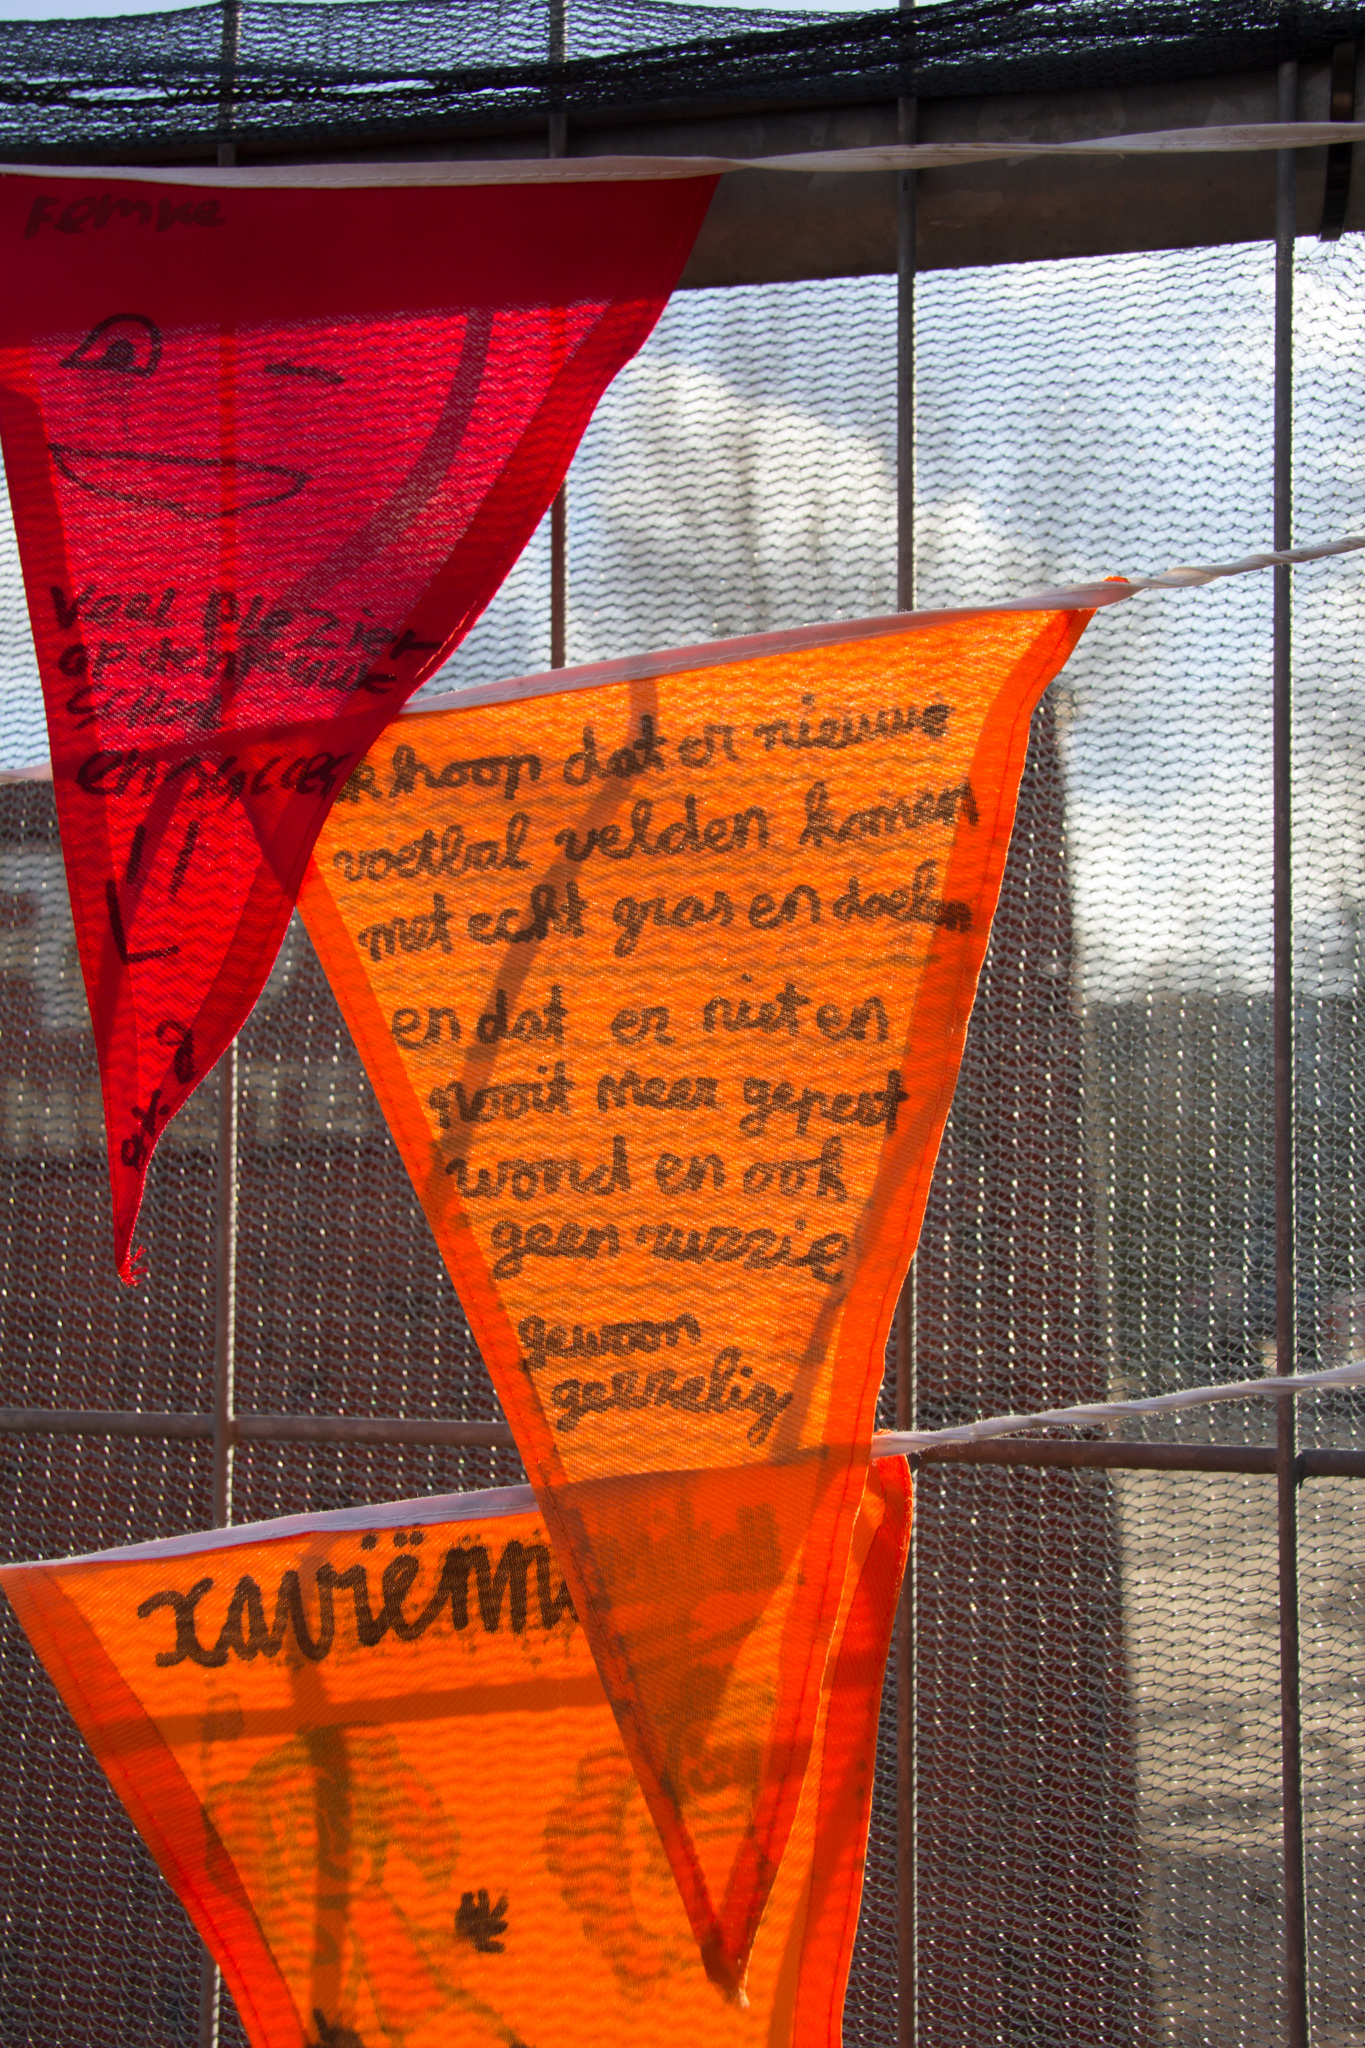 Femke
Veel plezier
op de nieuwe
School
en succes
ik hoop dat er nieuwe
voetbal velden komen
met echt gras en doelen
en dat er niet en
nooit meer gepest
word en ook
geen ruzzie
gewoon
geezelig
xaviënn